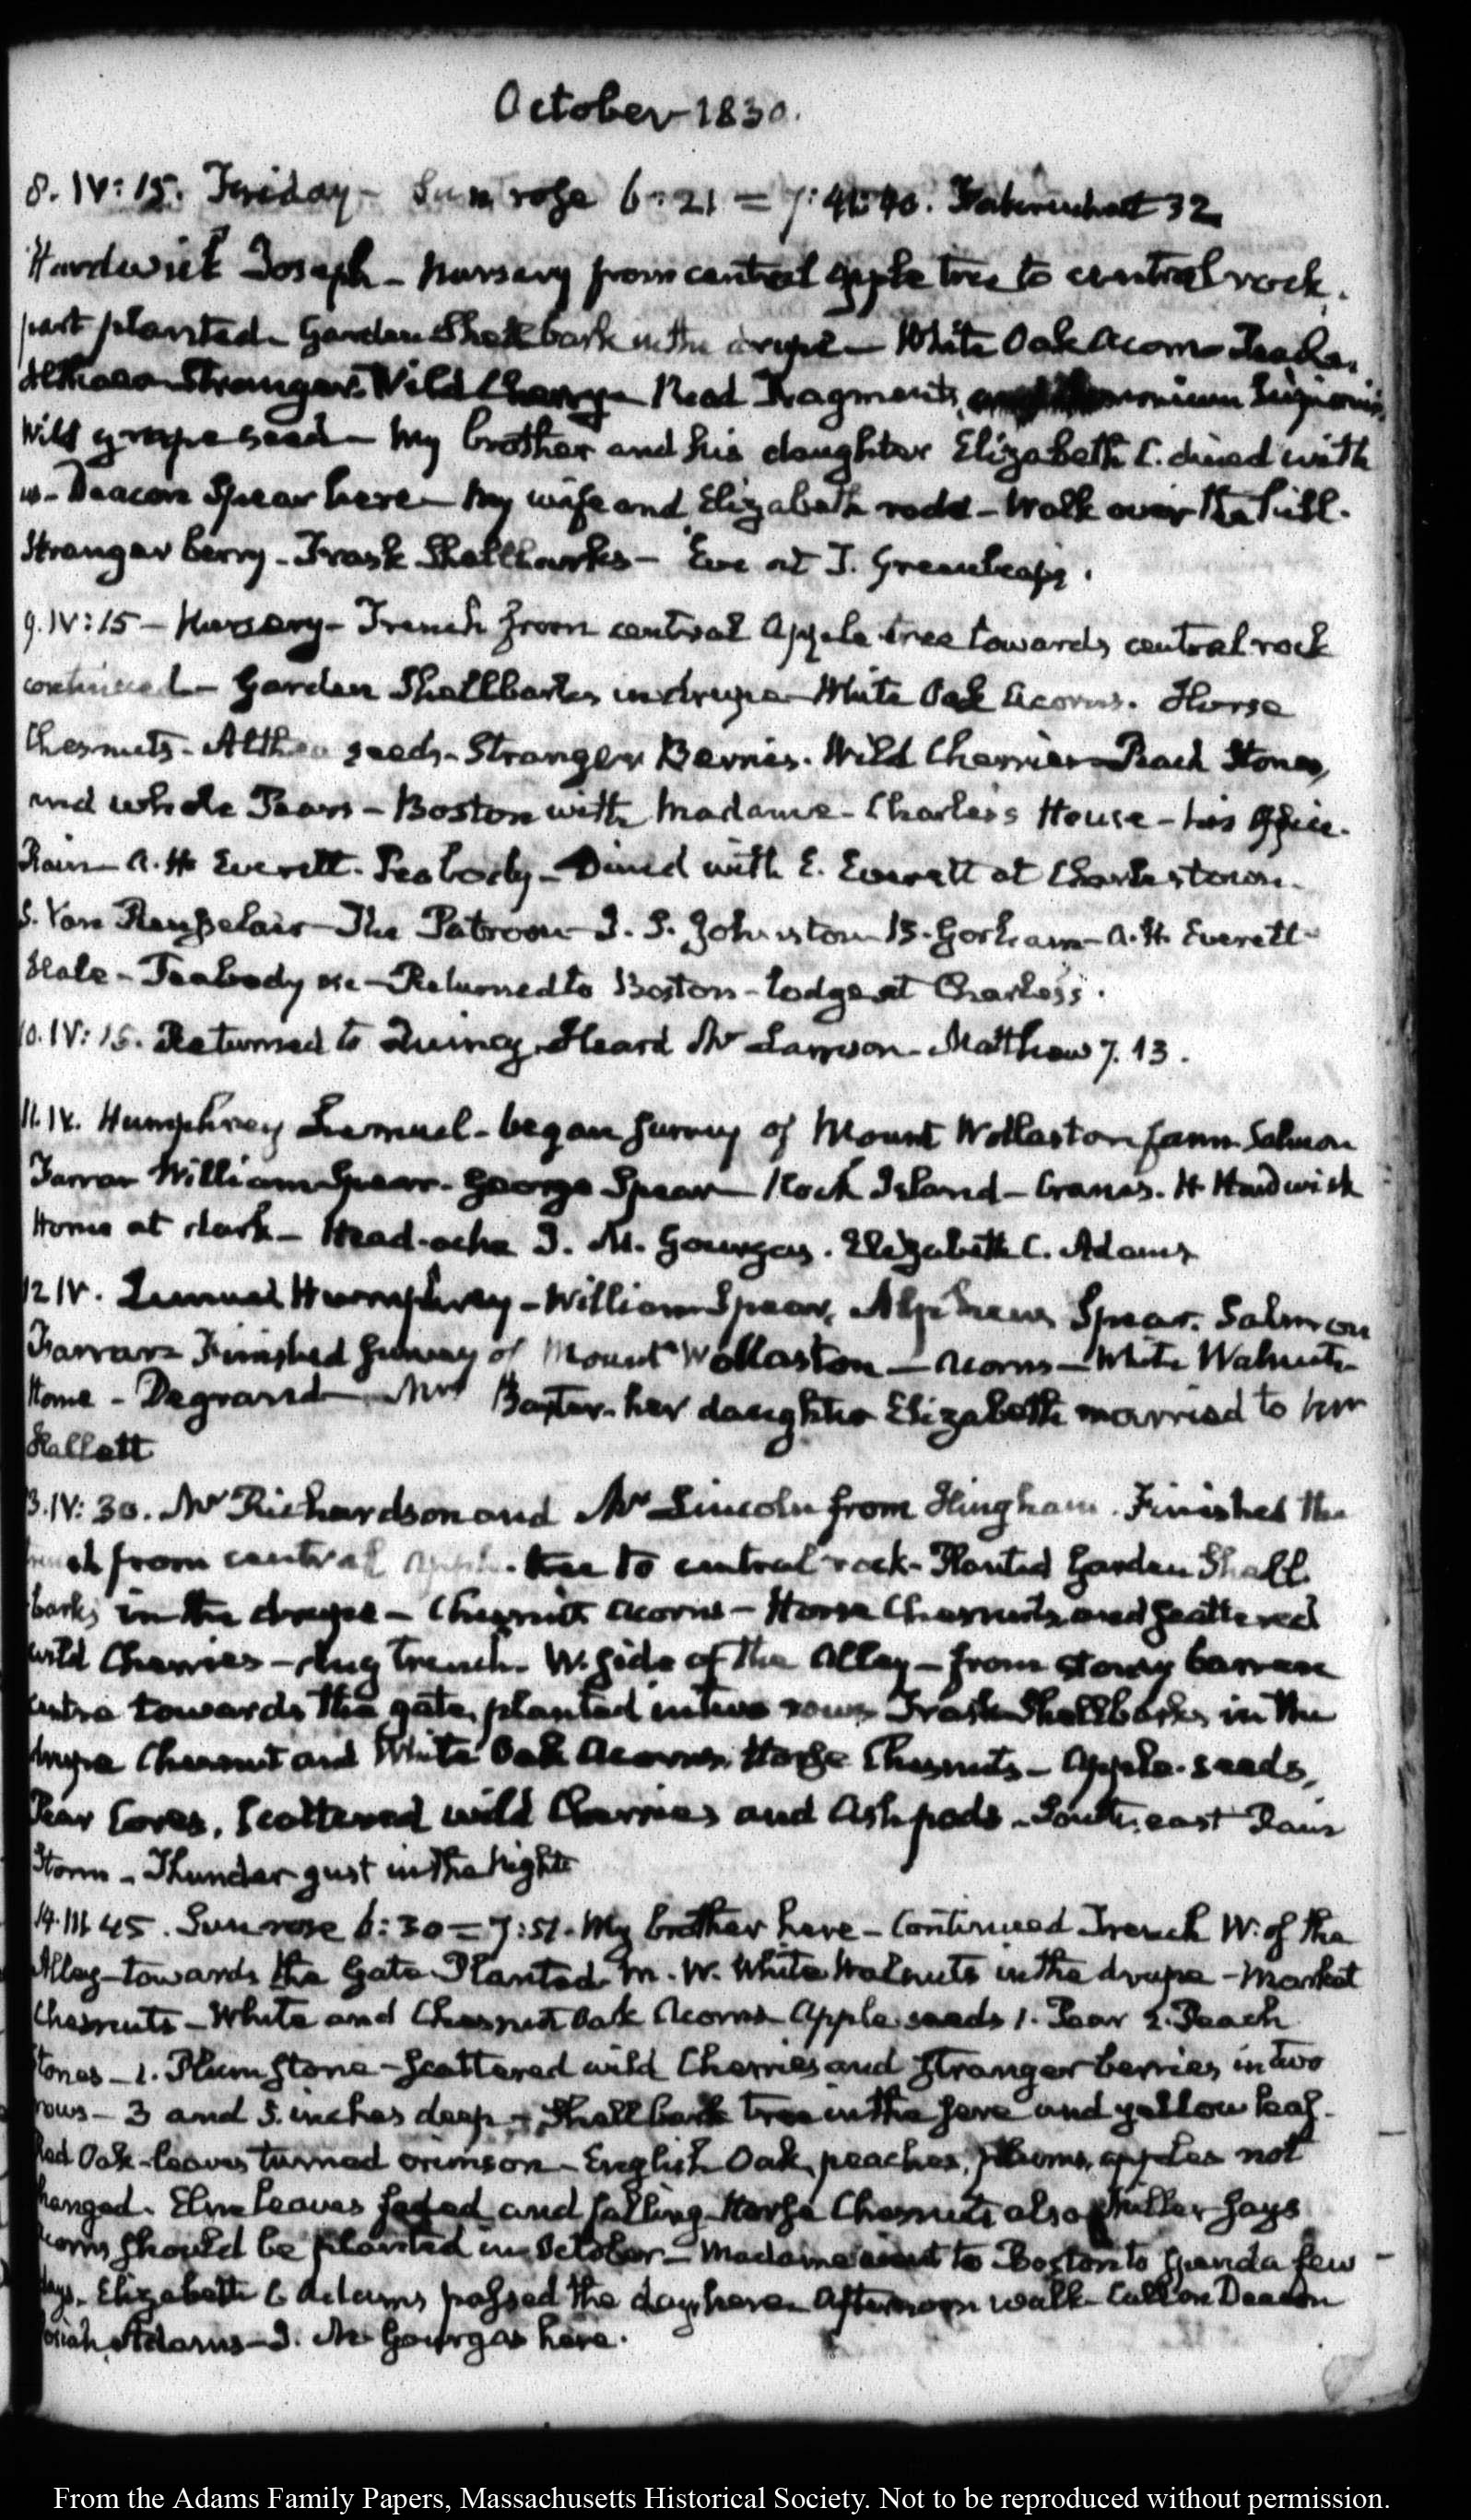 October 1830.
8. IV: 15. Friday - Sun rose 6:21 = Fahrenheit 32
Hardwick Joseph - Nursery from central apple tree to central rock.
part planted - Garden Shellbark in the drupe - White Oak Acorns
Althaea - Stranger. Wild Cherry - Read Fragments
Wild grape seed - My brother and his daughter Elizabeth C. dined with
us - Deacon Spear here - My wife and Elizabeth rode - Walk over the hill.
Stranger berry - Trask Shellbarks - Eve at T. Greenleaf's.
9. IV: 15 - Nursery - Trench from central Apple tree towards central rock
continued - Garden Shellbarks in drupe - White Oak Acorns. Horse
Chesnuts - Althea seeds - Stranger Berries. Wild Cherries - Peach Stones,
and whole Pears - Boston with Madame - Charles's House - his Office.
Rain - A. H. Everett. Peabody - Dined with E. Everett at Charlestown.
S. Van Rensselair - The Patroon - J. S. Johnston - B. Gorham - A. H. Everett -
Hale - Peabody &c - Returned to Boston - lodge at Charles's.
10. IV: 15. Returned to Quincy. Heard Mr Lamson - Matthew 7. 13.
11. IV. Humphrey Lemuel - began survey of Mount Wollaston farm Salmon
Farrar William Spear - George Spear - Rock Island - Cranes. H. Hardwick
Home at dark - Head-ache J. M. Gourgas. Elizabeth C. Adams
12 IV. Lemuel Humphrey - William Spear, Alpheus Spear. Salmon
Farrar - Finished survey of Mount Wollaston - Acorns - White Walnuts -
Home - Degrand - Mrs Baxter - her daughter Elizabeth married to
Hallett
13. IV: 30. Mr Richardson and Mr Lincoln from Hingham. Finished the
trench from central apple tree to central rock - Planted Garden Shell
barks in the drupe - Chesnut acorns - Horse Chesnuts and scattered
wild Cherries - dug trench. W. side of the Alley - from stony barren
centre towards the gate, planted in two rows Trask Shellbarks in the
drupe Chesnut and White Oak Acorns. Horse Chesnuts - Apple-seeds,
Pear Cores, scattered wild Cherries and Ash pods - South east Rain
Storm - Thunder gust in the Night
14. III. 45. Sun rose 6:30 = 7:51. My brother here - Continued Trench W. of the
Alley - towards the Gate - Planted M. W. White Walnuts in the drupe - Market
Chesnuts - White and Chesnut Oak Acorns Apple seeds 1. Pear 2. Peach
stones - 1. Plum stone - scattered wild Cherries and stranger berries in two
rows - 3 and 5. inches deep - Shellbark tree in the sere and yellow leaf -
Red Oak - leaves turned crimson - English Oak, peaches, plums, apples not
changed. Elm leaves faded and falling Horse Chesnuts also Miller says
acorns should be planted in October - Madame went to Boston to spend a few
days - Elizabeth C Adams passed the day here - Afternoon walk - Call on Deacon
Josiah Adams - J. M. Gourgas here.
From the Adams Family Papers, Massachusetts Historical Society. Not to be reproduced without permission.